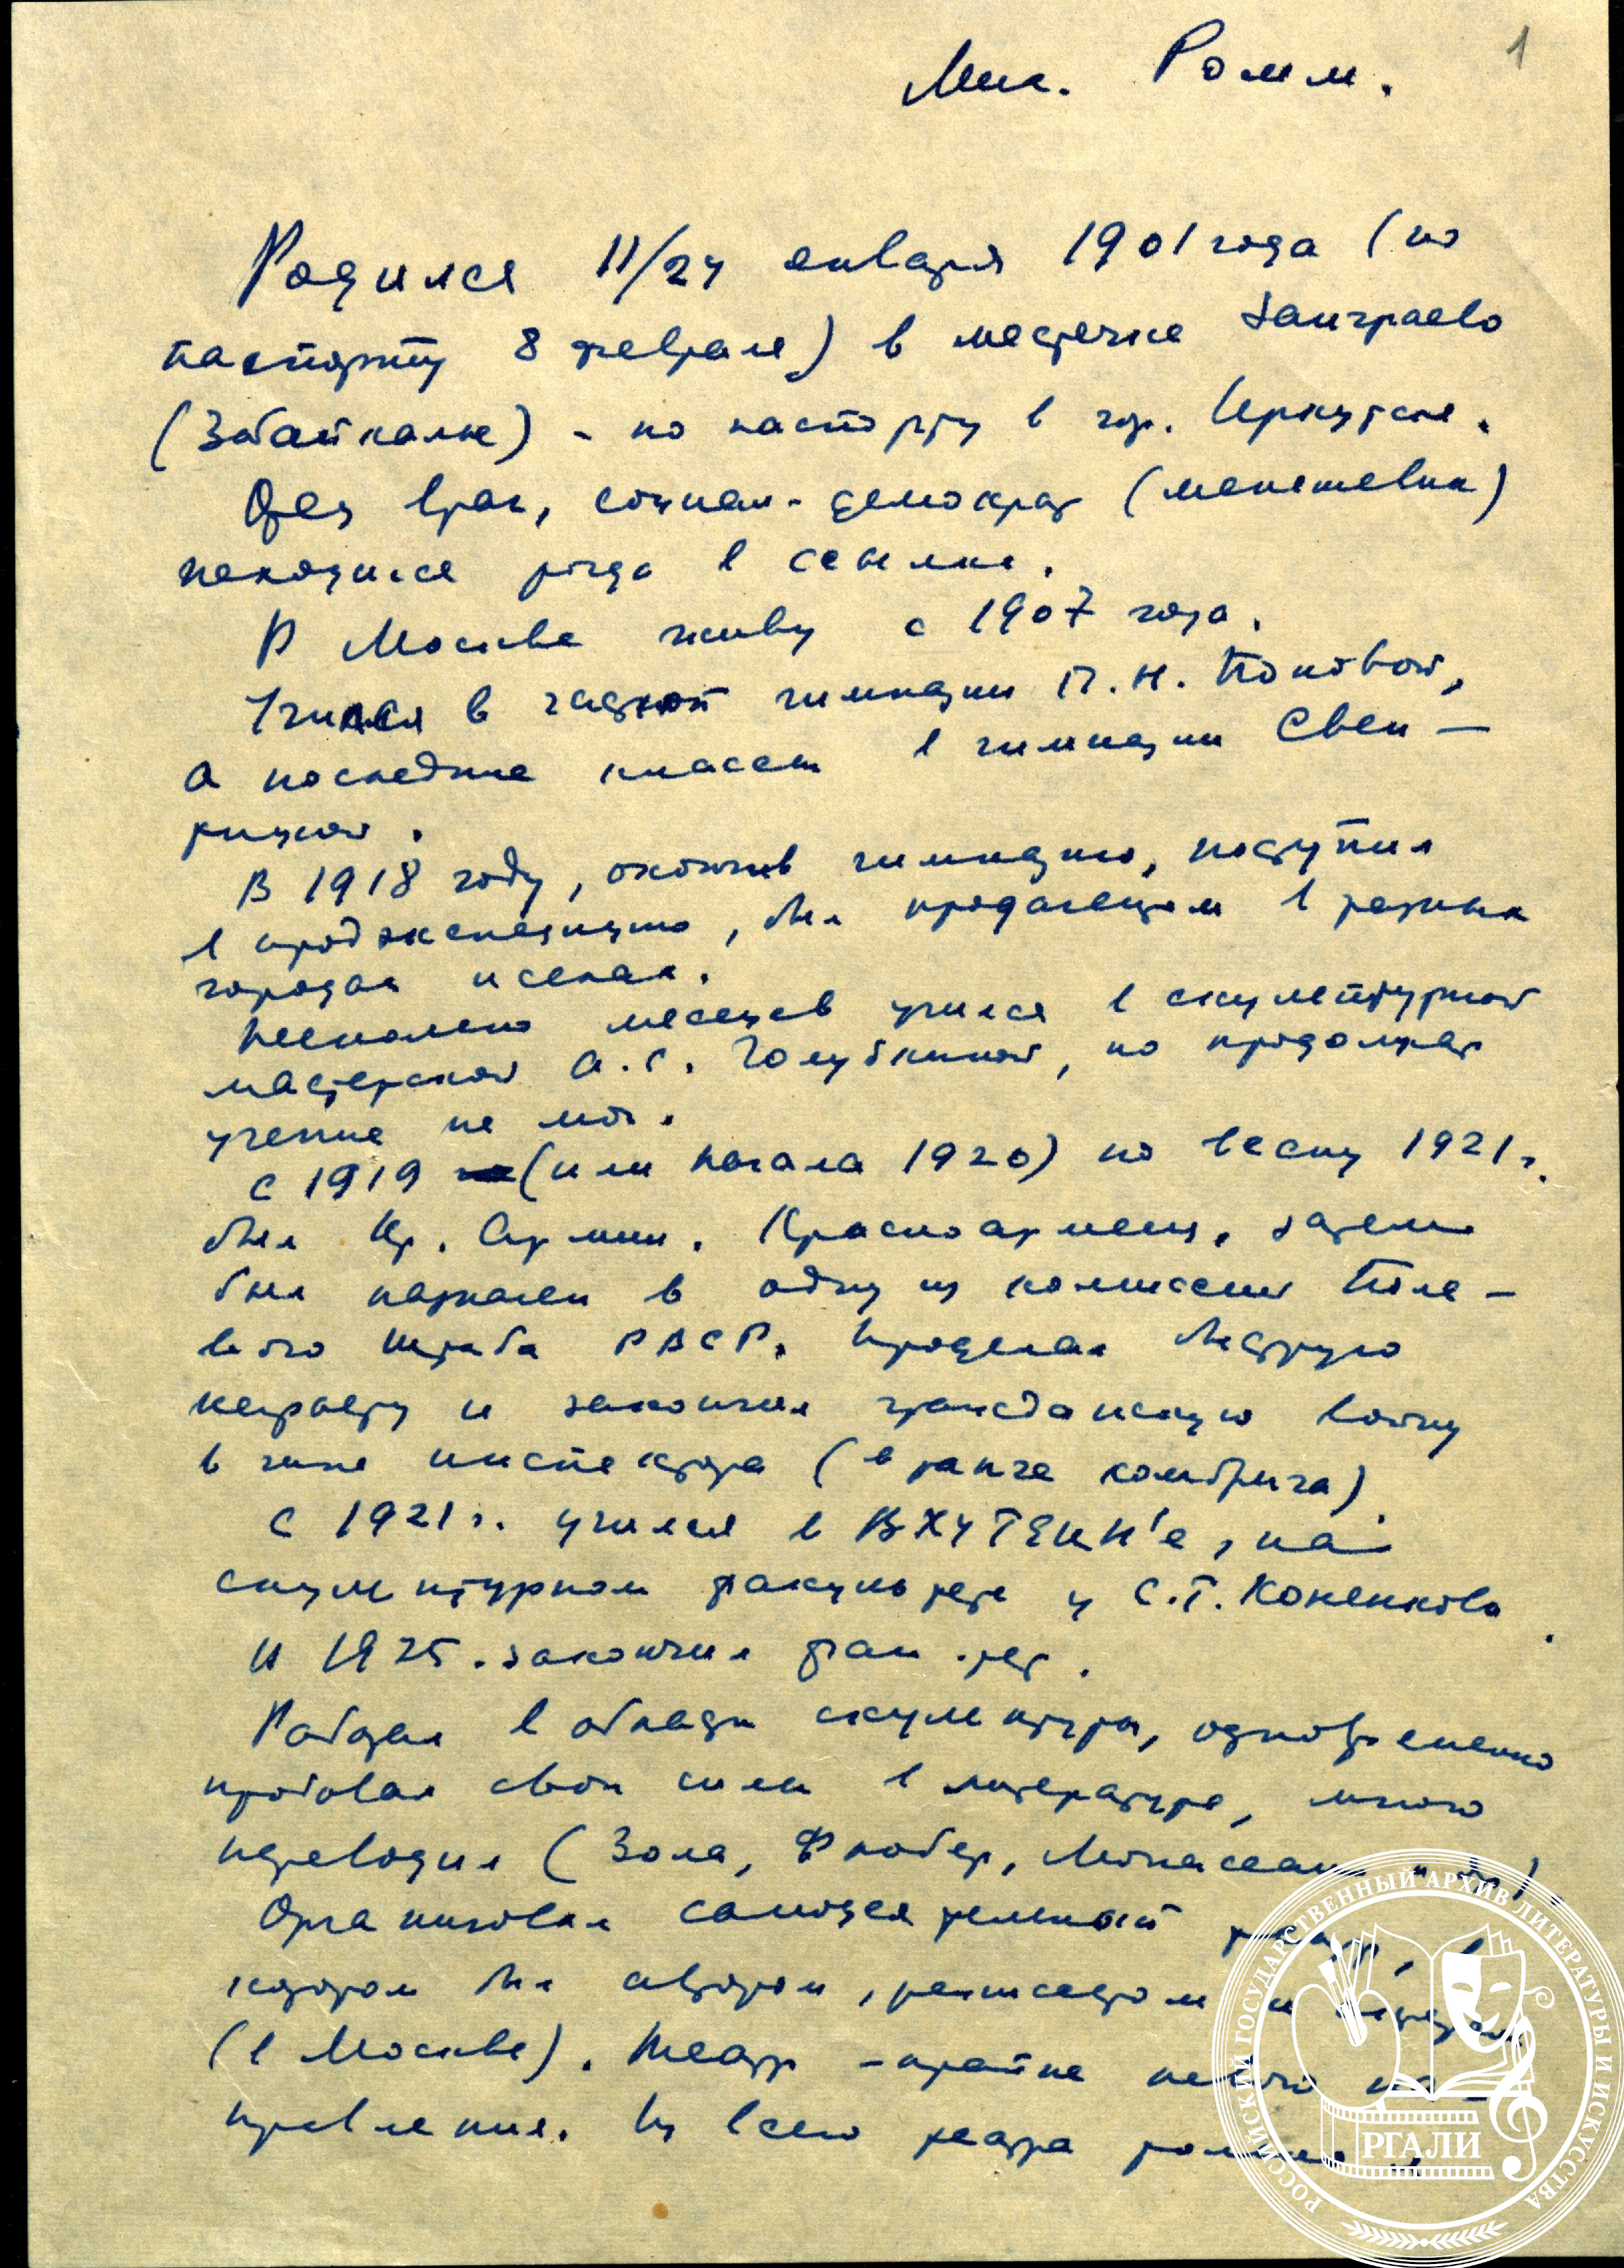 1
Мих. Ромм.
Родился 11/24 января 1901 года (по
паспорту 8 февраля) в местечке Заиграево
(Забайкалье) - по паспорту в гор. Иркутске.
Отец врач, социал-демократ (меньшевик)
находился тогда в ссылке.
В Москве живу с 1907 года.
Учился в частной гимназии П.Н. Поповой,
а последние классы в гимназии Свен-
тицкой.
В 1918 году, окончив гимназию, поступил
в продэкспедицию, был продагентом в разных
городах и селах.
Несколько месяцев учился в скульптурной
мастерской А.С. Голубкиной, но продолжать
учение не мог.
С 1919 (или начала 1920) по весну 1921 г.
был Кр. Армии. Красноармеец, затем
был назначен в одну из комиссий Поле-
вого Штаба РВСР. Проделал быструю
карьеру и закончил гражданскую войну
в чине инспектора (в ранге комбрига)
С 1921 г. учился в ВХУТЕИН'е, на
скульптурном факультете у С.Т. Коненкова.
В 1925. закончил фак.-тет.
Работал в области скульптуры, одновременно
пробовал свои силы в литературе, много
переводил (Зола, Флобер, Мопассан и др.)
Организовал самодеятельный театр, в
котором был автором, режиссером и актером
(в Москве). Театр - крайне левого на-
правления. Из всего театра только
РОССИЙСКИЙ ГОСУДАРСТВЕННЫЙ АРХИВ ЛИТЕРАТУРЫ И ИСКУССТВА
РГАЛИ